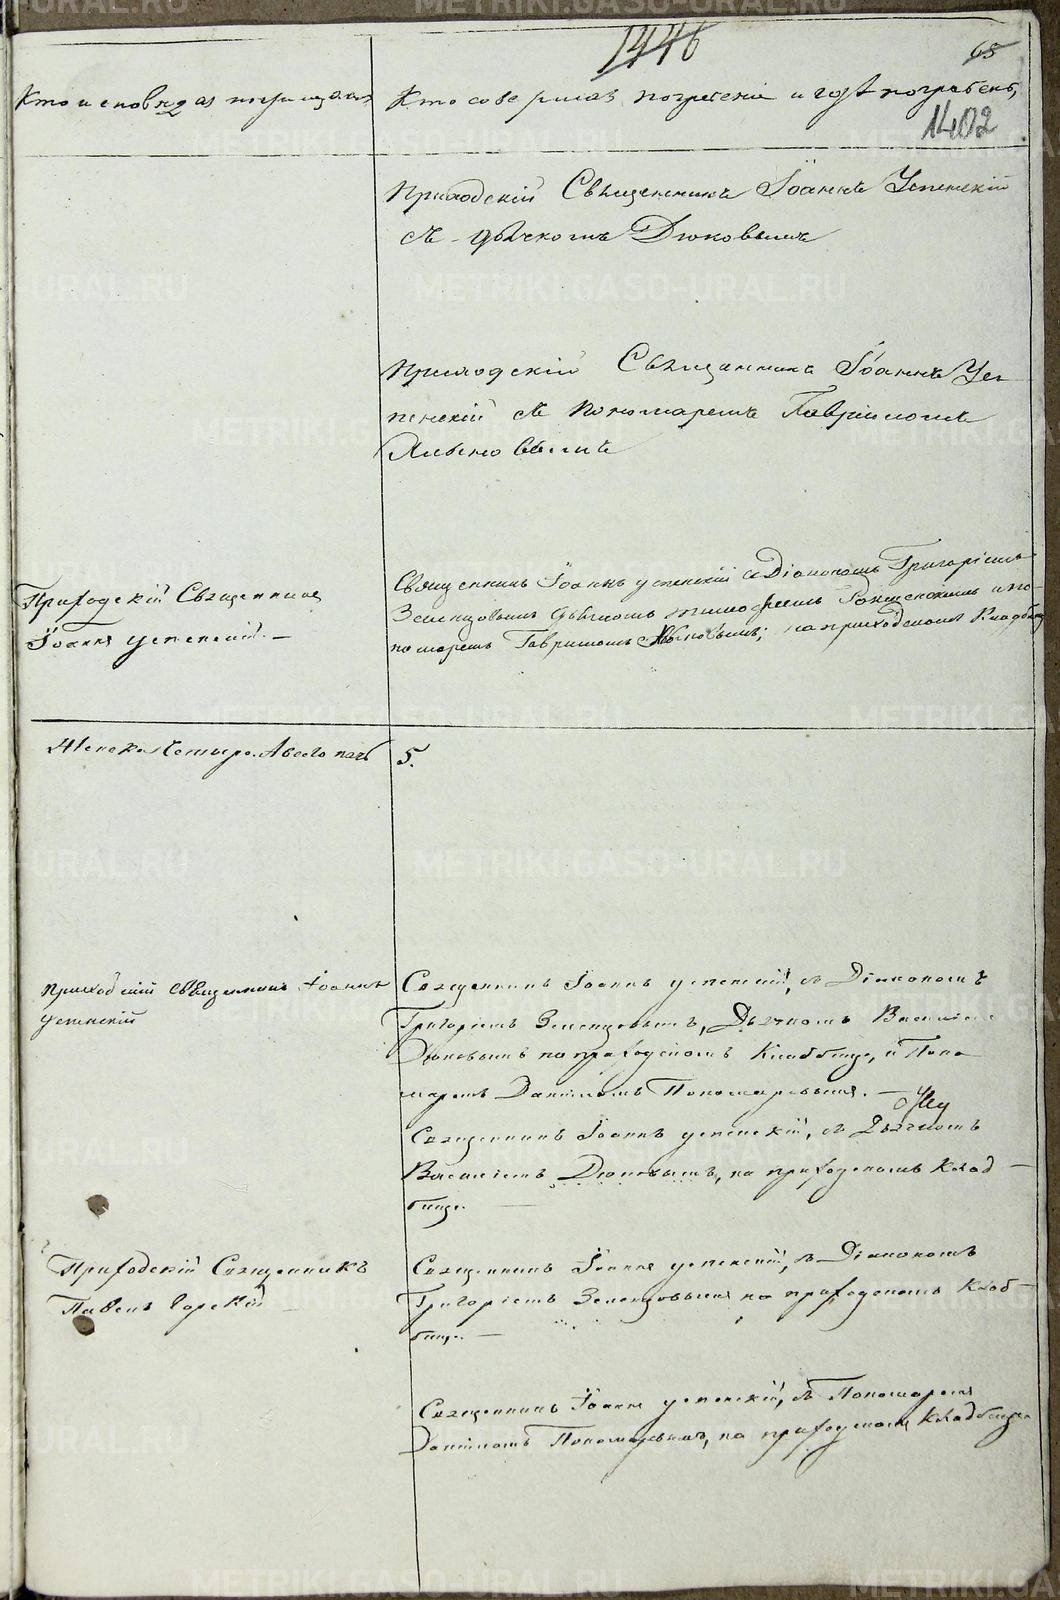 1446
65
Кто исповѣдал и приобщал
Кто совершал погребеніе и гдѣ погребены,
1402
Приходскій Священникъ Іоаннъ Успенскій
съ дьячкомъ Дюковымъ
Приходскій Священникъ Іоаннъ Ус
пенскій съ Пономаремъ Гавріиломъ
Священникъ Іоаннъ Успенскій съ Діакономъ Григоріемъ
Приходскій Священникъ
Іоаннъ Успенскій. —
Земенцовымъ Дьячкомъ и по
номаремъ Гавриломъ на приходскомъ Кладби
Женска четыре. А всего пять
5.
Приходскій Священникъ Іоаннъ
Успенскій
Священникъ Іоаннъ Успенскій, съ Діакономъ
Григоріемъ Земенцовымъ, Дьячкомъ Василіемъ
Дюковымъ на приходскомъ Кладбище, и Поно
маремъ Даніиломъ Пономаревымъ. —
Священникъ Іоаннъ Успенскій, съ Дьячкомъ
Василіемъ Дюковымъ, на приходскомъ Клад
бище. —
Приходскій Священникъ
Павелъ Горскій —
Священникъ Іоаннъ Успенскій, съ Діакономъ
Григоріемъ Земенцовымъ на приходскомъ Клад
бище. —
Священникъ Іоаннъ Успенскій, съ Пономаремъ
Даніиломъ Пономаревымъ, на приходскомъ Кладбище
METRIKI.GASO-URAL.RU